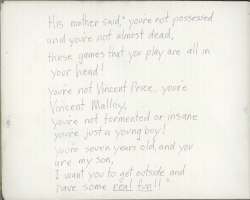 His mother said, "you're not possessed
and you're not almost dead,
these games that you play are all in
your head!
you're not Vincent Price, you're
Vincent Malloy,
you're not tormented or insane
you're just a young boy!
you're seven years old, and you
are my son,
I want you to get outside and
have some real fun!!"